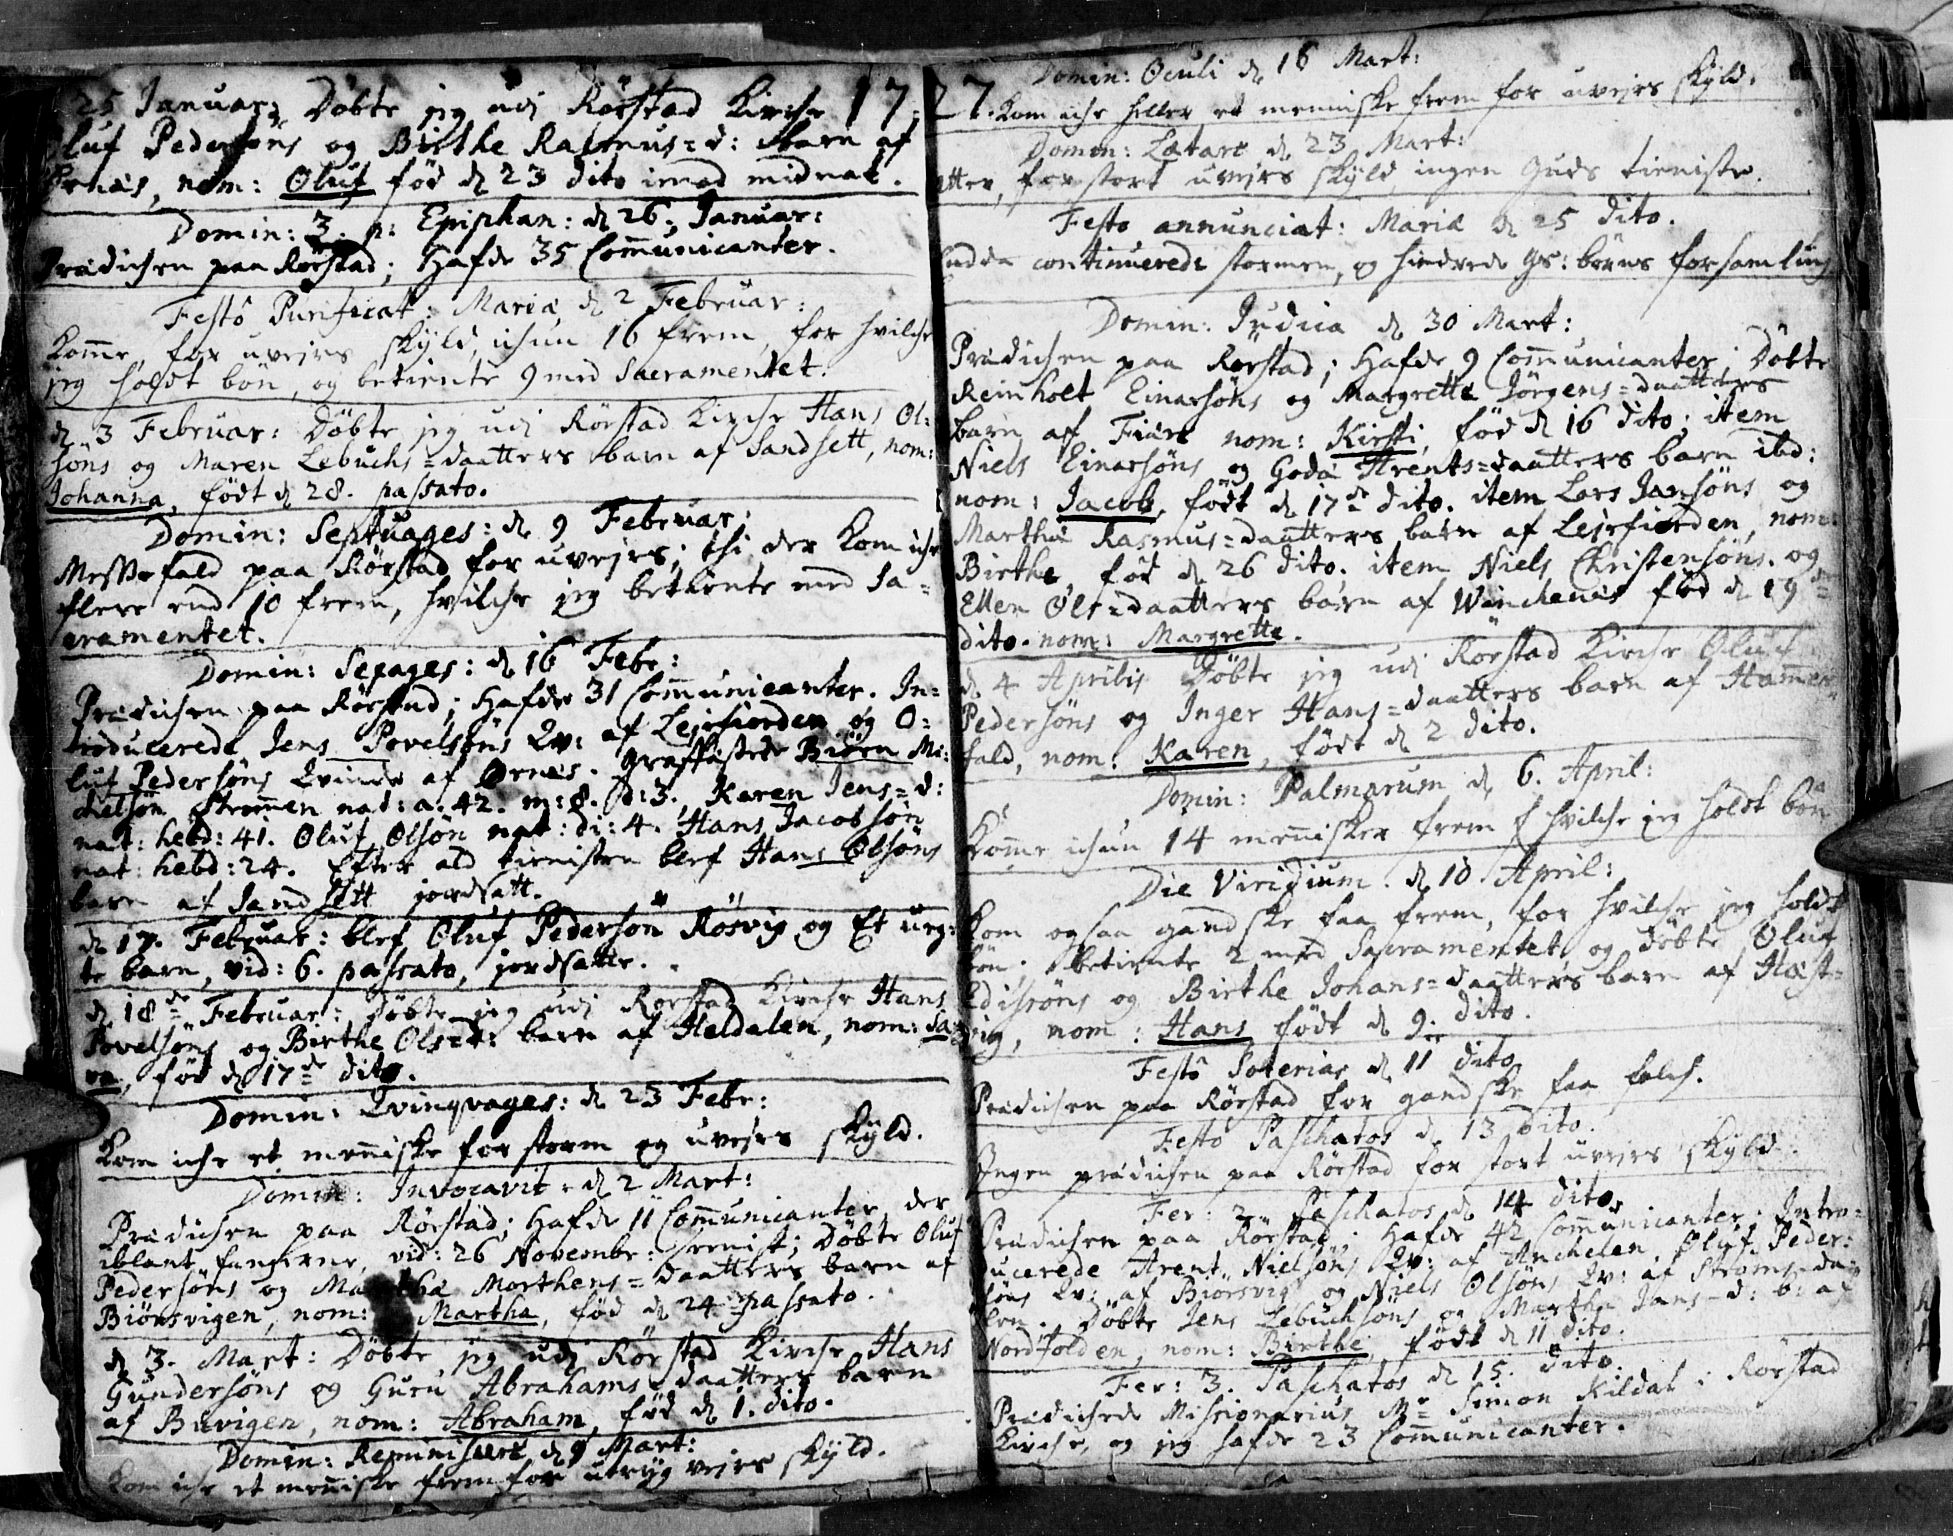 25 Januar: Døbte jeg udi Rørstad Kirche 17
Oluf Pedersøns og Birthe Rasmus=d: barn af
Ørnæs, nom: Oluf, fød d 23 dito imod midnat.
Domin: 3. p: Epiphan: d 26. Januar:
Prædichen paa Rørstad; Hafde 35 Communicanter.
Festô Purificat: Mariæ d 2 Februar:
Komme, for uvejrs skyld, ichun 16 frem, for hvilche
jeg holdt bøn, og betiente 9 med Sacramentet.
d 3 Februar: Døbte jeg udi Rørstad Kirche Hans Ol:
søns og Maren Lebuchs=daatters barn af Sandsett, nom:
Johanna, født d 28. passato.
Domin: Septuages: d 9 Februar:
Messefald paa Rørstad for uvejrs; thi der kom iche
flere end 10 frem, hvilche jeg betiente med Sa=
cramentet.
Domin: Sexages: d 16 Febr:
Prædichen paa Rørstad; Hafde 31 Communicanter. In=
troducerede Jens Povelsøns Qv: af Lejrfiorden og O=
luf Pedersøns Qvinde af Ørnæs. Graffæstede Biørn Mi:
chelsøn Strømmen nat: a: 42. m: 8. d: 3. Karen Jens=d:
nat: hebd: 41. Oluf Olsøn nat: di: 4. Hans Jacobsøn
nat: hebd: 24. Efter ald tienisten blef Hans Olsøns
barn af Sandsett jordsatt.
d 17. Februar: blef Oluf Pedersøn Røsvig og Et uæg:
te barn, vid: 6. passato, jordsatte.
d 18de Februar: Døbte jeg udi Rørstad Kirche Hans
Povelsøns og Birthe Ols=d: barn af Heldalen, nom: Sa:
ra, fød d 17de dito.
Domin: Qvinqvages: d 23 Febr:
Kom iche et menniske for storm og uvejrs skyld.
Domin: Invocavit d 2 Mart:
Prædichen paa Rørstad; Hafde 11 Communicanter, der
iblant fangerne, vid: 26 Novembr: Døbte Oluf
Pedersøns og Martha Morthens=daatters barn af
Biørsvigen, nom: Martha, fød d 24 passato.
d 3. Mart: Døbte jeg udi Rørstad Kirche Hans
Gundersøns og Guru Abrahams=daatters barn
af Buvigen, nom: Abraham, fød d 1. dito.
Domin: Reminiscere d 9 Mart:
Kom iche et menniske frem for utryg vejrs skyld.
27. Domin: Oculi d 16 Mart:
Kom iche heller et menniske frem for uvejrs skyld.
Domin: Lætare d 23 Mart:
atter, for stort uvejrs skyld, ingen Guds tieniste.
Festo annunciat: Mariæ d 25 dito.
Endda continuerede stormen, og hindrede Gs: børns forsamling
Domin: Judica d 30 Mart:
Prædichen paa Rørstad; Hafde 9 Communicanter; Døbte
Reinholt Einarsøns og Margrette Jørgens=daatters
barn af Fiære nom: Kirsti, fød d 16 dito; item
Niels Einarsøns og Goda Arents=daatters barn ibd:
nom: Jacob, født d 17de dito. item Lars Jansøns og
Martha Rasmus=daatters barn af Lejrfiorden, nom:
Birthe, fød d 26 dito. item Niels Christensøns og
Ellen Ols=daatters barn af Winchenes fød d 19de
dito. nom: Margrette.
d 4 Aprilis Døbte jeg udi Rørstad Kirche Oluf
Pedersøns og Inger Hans=daatters barn af Hammer
fald, nom: Karen, født d 2 dito.
Domin: Palmarum d 6. April:
Komme ichun 14 mennisker frem f hvilche jeg holdt bøn
Die Viridium d 10 April:
Kom ogsaa gandske faa frem, for hvilche jeg holdt
bøn; betiente 2 med Sacramentet og døbte Oluf
Edissøns og Birthe Johans=daatters barn af Hæst=
vig, nom: Hans født d 9. dito.
Festô Soterias d 11 dito
Prædichen paa Rørstad for gandske faa folch.
Festô Paschatos d 13 Dito.
Ingen prædichen paa Rørstad for stort uvejrs skyld.
Fer: 2 Paschatos d 14 dito.
Prædichen paa Rørstad; Hafde 42 Communicanter; Intro=
ducerede Arent Nielsøns Qv: af Anchelen, Oluf Peder:
søns Qv: af Biørsvig og Niels Olsøns Qv: af Strøms=da=
len. Døbte Jens Lebuchsøns og Martha Jans=d: b: af
Nordfolden, nom: Birthe, født d 11 dito.
Fer: 3. Paschatos d 15. dito.
Prædichede Missionarius Mr Simon Kildal i Rørstad
Kirche, og jeg hafde 23 Communicanter.